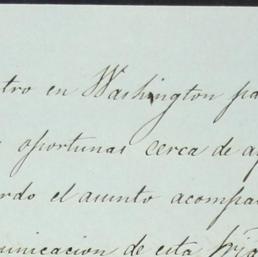 tro en Washington pa
oportunas cerca de a
rdo el asunto acompa
unicacion de esta